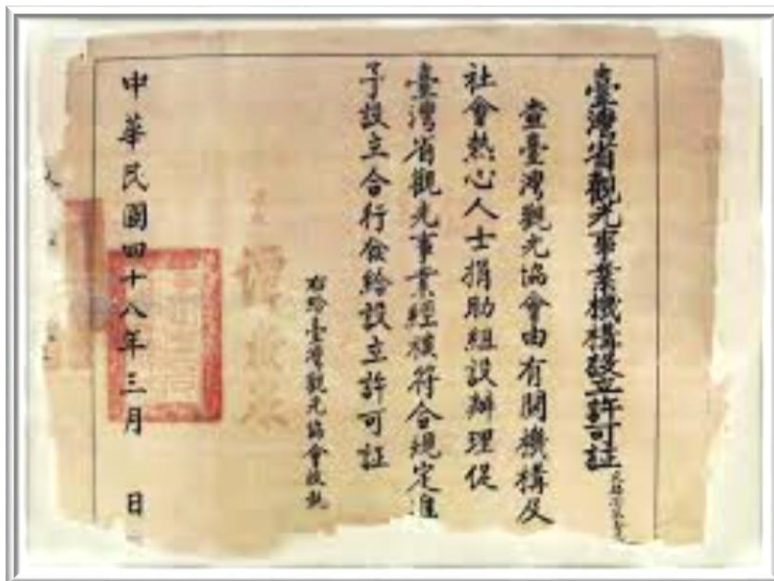 臺灣省觀光事業機構設立許可証
查臺灣觀光協會由有關機構及
社會熱心人士捐助組設辦理促
臺灣省觀光事業經核符合規定准
予設立合行發給設立許可証
右給臺灣觀光協會收執
中華民國四十八年三月 日